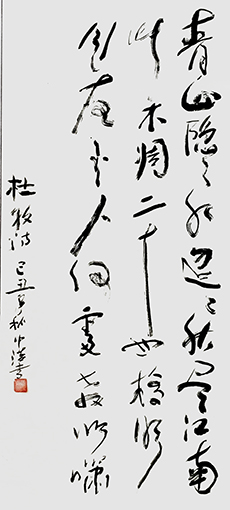 青山隐〻水迢〻秋尽江南
草木凋二十四桥明
月夜玉人何处教吹箫
杜牧诗 己丑年秋